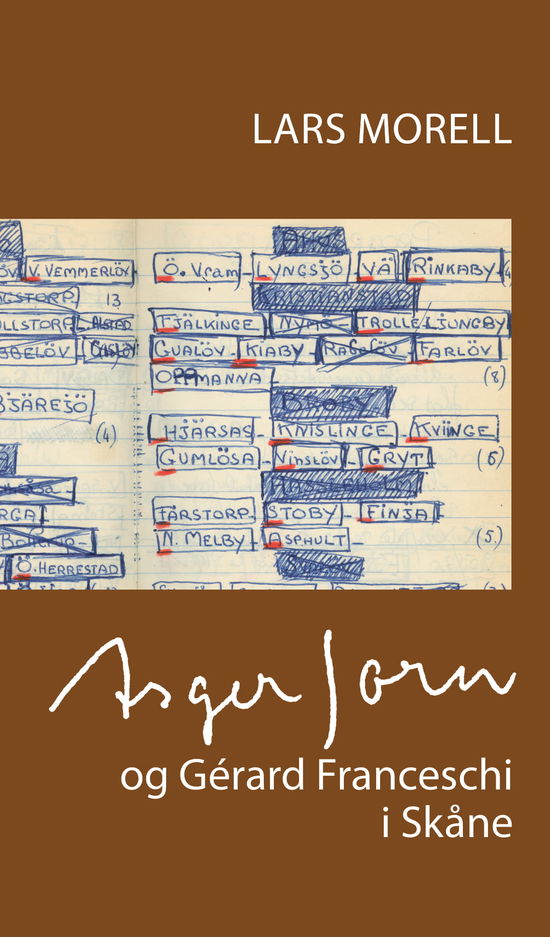 LARS MORELL
V. VEMMERLÖV
Ö. Vram - LYNGSJÖ VÄ RINKABY
13
FJÄLKINGE NYMÖ TROLLE LJUNGBY
ALSTAD
GUALÖV KIABY FARLÖV
OPPMANNA (8)
BJÄRESJÖ
(4) HJÄRSAS - KNISLINGE KVIINGE
GUMLÖSA - Vinslöv - GRYT (6)
FÄRSTORP STOBY - FINJA
N. MELBY - ASPHULT - (5.)
Ö. HERRESTAD
Asger Jorn
og Gérard Franceschi
i Skåne